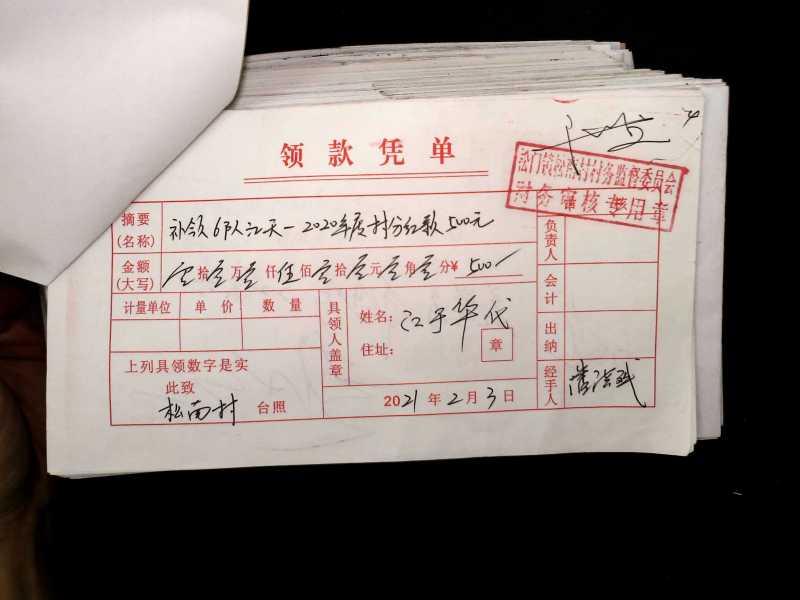 领款凭单
村村务监督委员会
财务审核专用章
摘要
(名称)
补领6队江天一2020年度村分红款500元
金额
(大写)
零拾零万零仟伍佰零拾零元零角零分¥500/
计量单位 单价 数量
具领人盖章
姓名: 江于华代
住址:
章
上列具领数字是实
此致
松南村 台照
2021年2月3日
负责人
会计
出纳
经手人